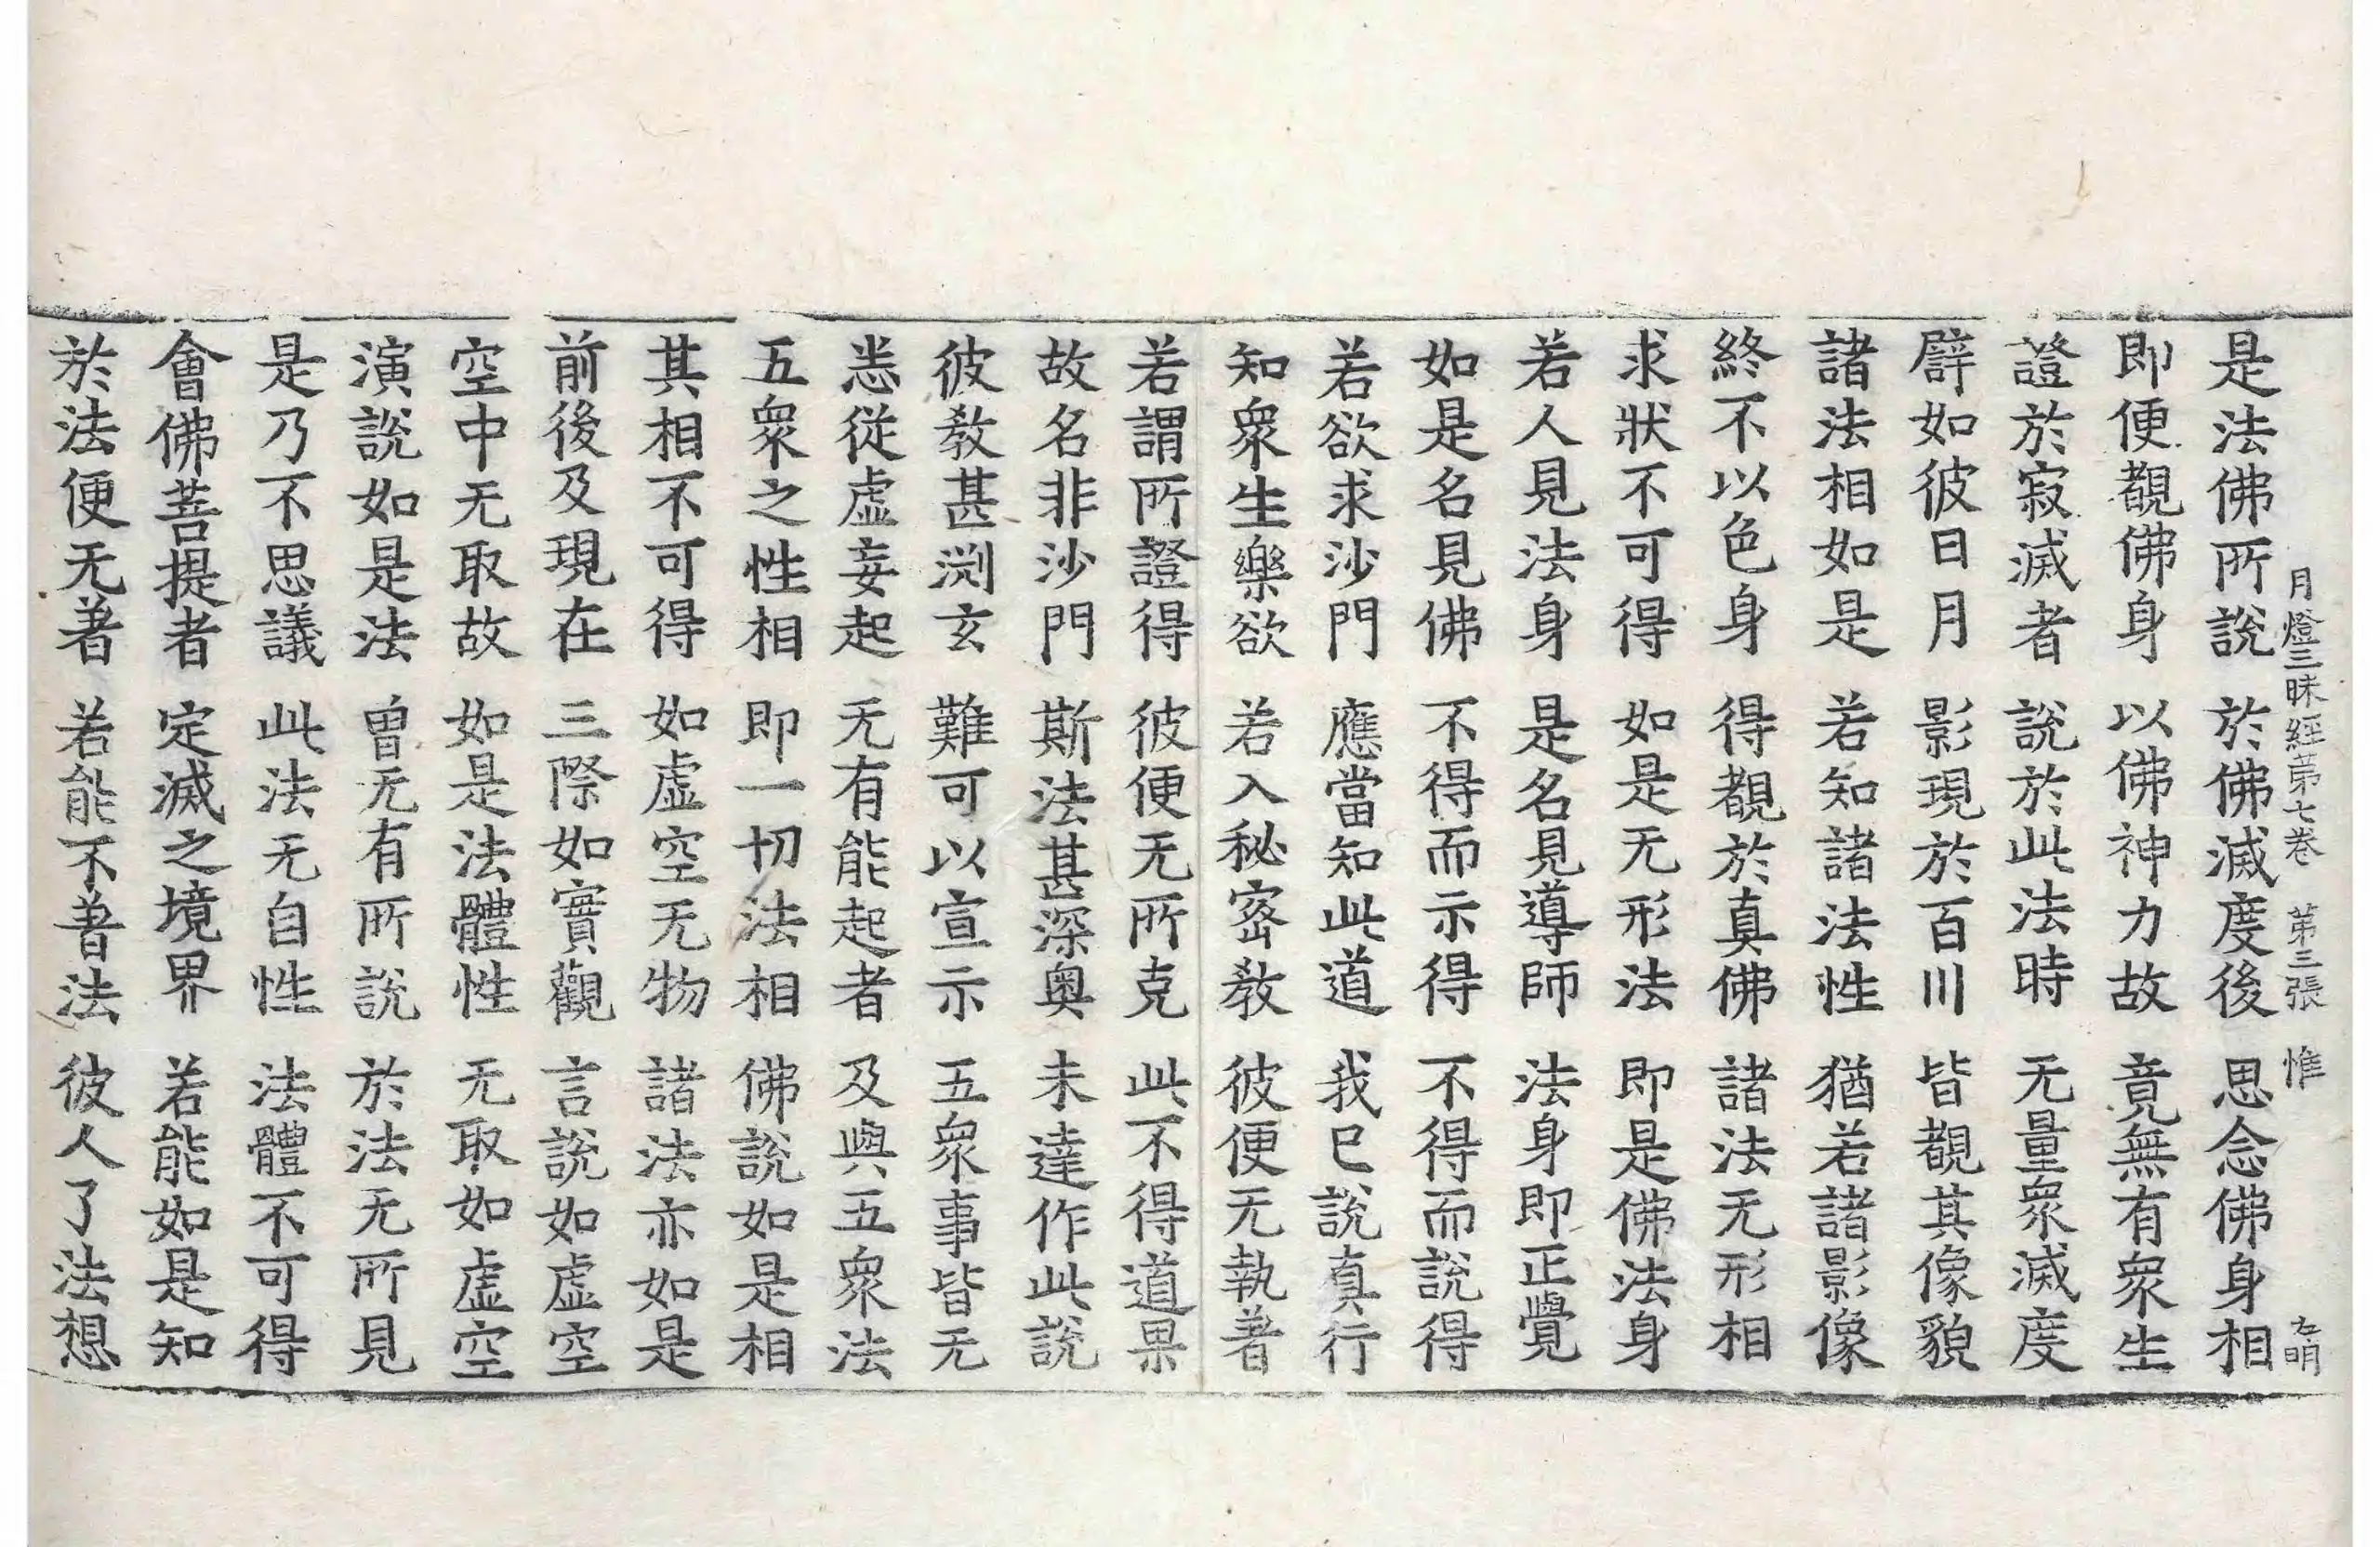 月燈三昧經苐七卷　苐三張　惟　九明
是法佛所說　於佛滅度後　思念佛身相
即便覩佛身　以佛神力故　竟無有衆生
證於寂滅者　說於此法時　无量衆滅度
譬如彼日月　影現於百川　皆覩其像貌
諸法相如是　若知諸法性　猶若諸影像
終不以色身　得覩於真佛　諸法无形相
求狀不可得　如是无形法　即是佛法身
若人見法身　是名見導師　法身即正覺
如是名見佛　不得而示得　不得而說得
若欲求沙門　應當知此道　我已說真行
知衆生樂欲　若入秘宻教　彼便无執著
若謂所證得　彼便无所克　此不得道果
故名非沙門　斯法甚深奧　未達作此說
彼教甚渕玄　難可以宣示　五衆事皆无
悉從虛妄起　无有能起者　及與五衆法
五衆之性相　即一切法相　佛說如是相
其相不可得　如虛空无物　諸法亦如是
前後及現在　三際如實觀　言說如虛空
空中无取故　如是法體性　无取如虛空
演說如是法　曽无有所說　於法无所見
是乃不思議　此法无自性　法體不可得
會佛菩提者　定滅之境界　若能如是知
於法便无著　若能不著法　彼人了法想